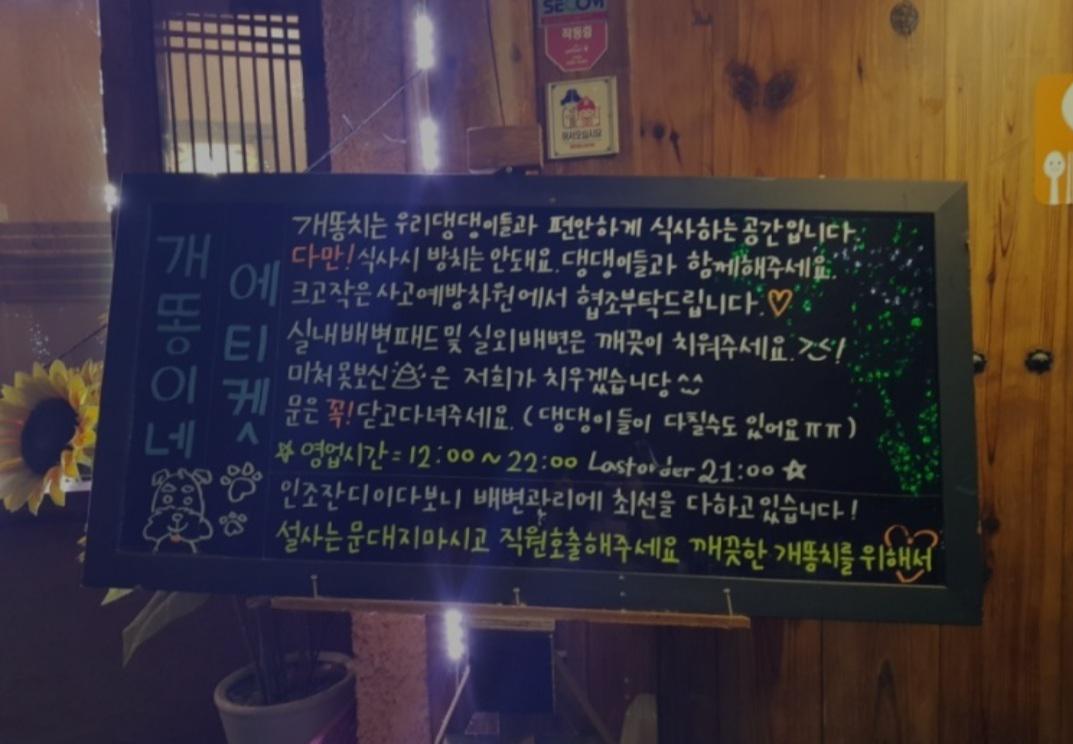 SECOM
작동중
어서오십시오
개똥이네
에티켓
개똥치는 우리댕댕이들과 편안하게 식사하는 공간입니다.
다만! 식사시 방치는 안돼요. 댕댕이들과 함께해주세요.
크고작은 사고예방차원에서 협조부탁드립니다.♡
실내배변패드및 실외배변은 깨끗이 치워주세요.>.<!
미처못보신💩은 저희가 치우겠습니당 ^^
문은 꼭! 닫고다녀주세요. (댕댕이들이 다칠수도 있어요ㅠㅠ)
☆ 영업시간 = 12:00 ~ 22:00 Last order 21:00 ☆
인조잔디이다보니 배변관리에 최선을 다하고있습니다!
설사는 문대지마시고 직원호출해주세요 깨끗한 개똥치를위해서